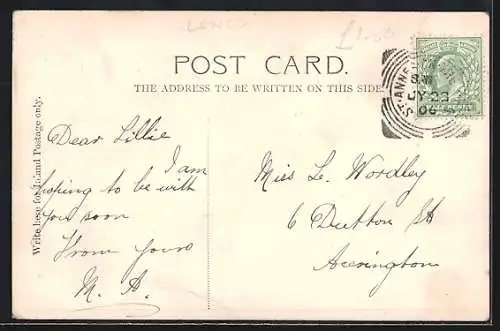 LANCS
£1.50
POST CARD.
THE ADDRESS TO BE WRITTEN ON THIS SIDE
Write here for Inland Postage only.
Dear Lillie
I am
hoping to be with
you soon
From yours
M. A.
Miss L. Wordley
6 Dutton St
Accrington
ST. ANNES
JY 23
06